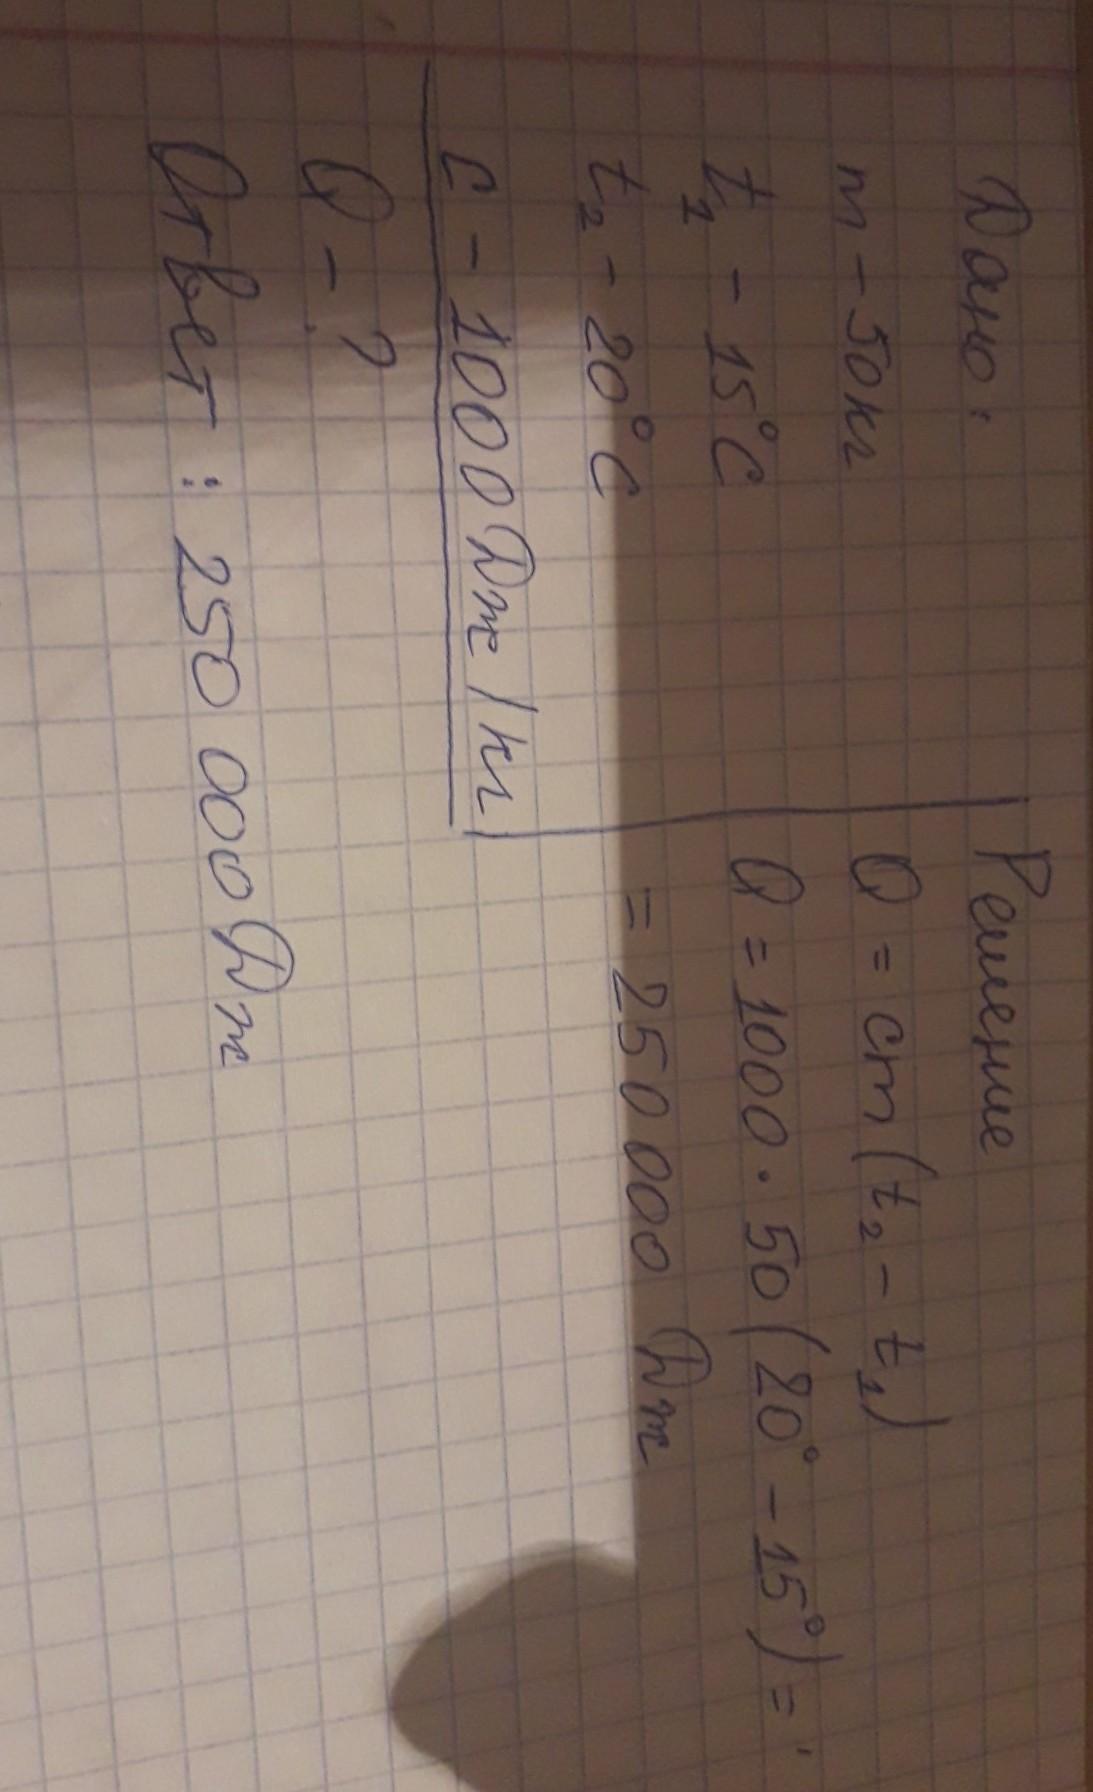 Дано:
m - 50 кг
t₁ - 15°C
t₂ - 20°C
c - 1000 Дж/кг
Q - ?
Решение
Q = cm (t₂ - t₁)
Q = 1000 · 50 (20° - 15°) =
= 250 000 Дж
Ответ: 250 000 Дж